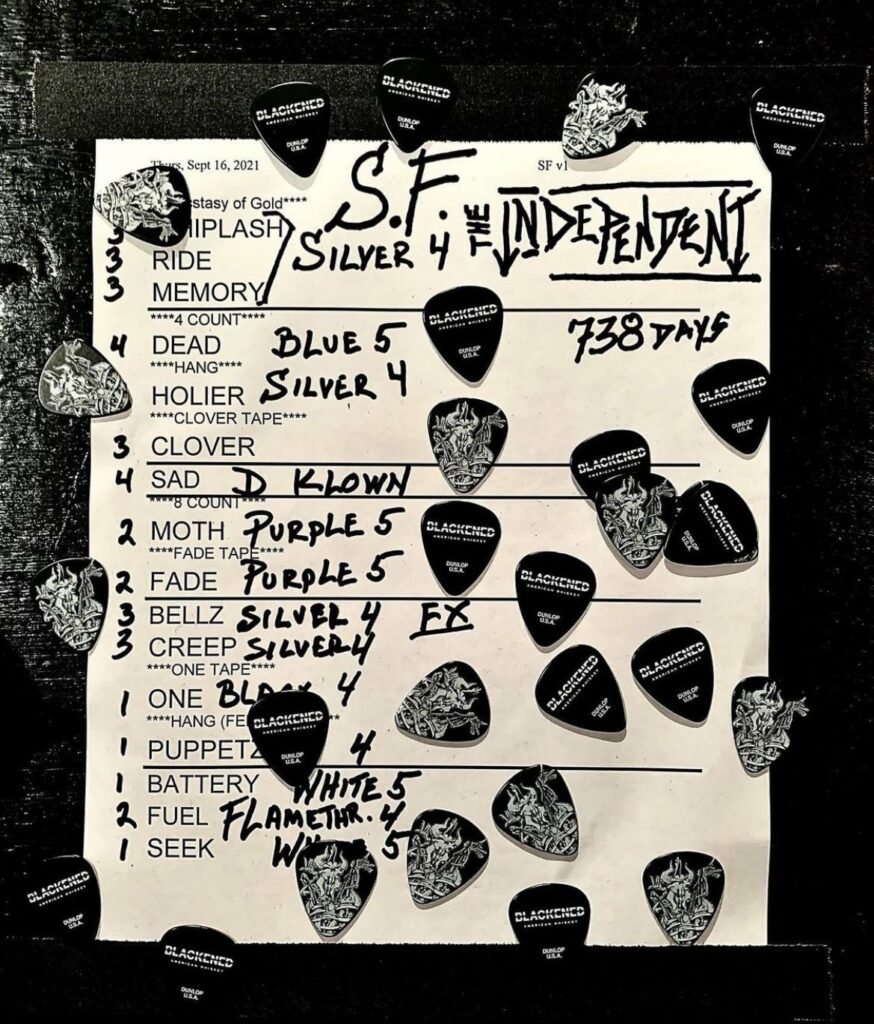 BLACKENED
AMERICAN WHISKEY
DUNLOP
U.S.A.
BLACKENED
AMERICAN WHISKEY
DUNLOP
U.S.A.
BLACKENED
AMERICAN WHISKEY
DUNLOP
U.S.A.
Sept 16, 2021 SF v1
S.F.
THE INDEPENDENT
of Gold****
SILVER 4
3 RIDE
3 MEMORY
****4 COUNT****
738 DAYS
4 DEAD BLUE 5
****HANG****
HOLIER SILVER 4
****CLOVER TAPE****
3 CLOVER
4 SAD D KLOWN
****8 COUNT****
2 MOTH PURPLE 5
****FADE TAPE****
2 FADE PURPLE 5
3 BELLZ SILVER 4 FX
3 CREEP SILVER 4
****ONE TAPE****
1 ONE 4
****HANG
1 PUPPETZ 4
1 BATTERY WHITE 5
2 FUEL FLAMETHR. 4
1 SEEK 5
BLACKENED
AMERICAN WHISKEY
DUNLOP
U.S.A.
BLACKENED
AMERICAN WHISKEY
DUNLOP
U.S.A.
BLACKENED
AMERICAN WHISKEY
BLACKENED
AMERICAN WHISKEY
DUNLOP
U.S.A.
BLACKENED
AMERICAN WHISKEY
DUNLOP
U.S.A.
BLACKENED
AMERICAN WHISKEY
DUNLOP
U.S.A.
BLACKENED
AMERICAN WHISKEY
DUNLOP
U.S.A.
BLACKENED
AMERICAN WHISKEY
DUNLOP
U.S.A.
BLACKENED
AMERICAN WHISKEY
DUNLOP
U.S.A.
BLACKENED
AMERICAN WHISKEY
DUNLOP
U.S.A.
BLACKENED
AMERICAN WHISKEY
DUNLOP
U.S.A.
BLACKENED
AMERICAN WHISKEY
DUNLOP
U.S.A.